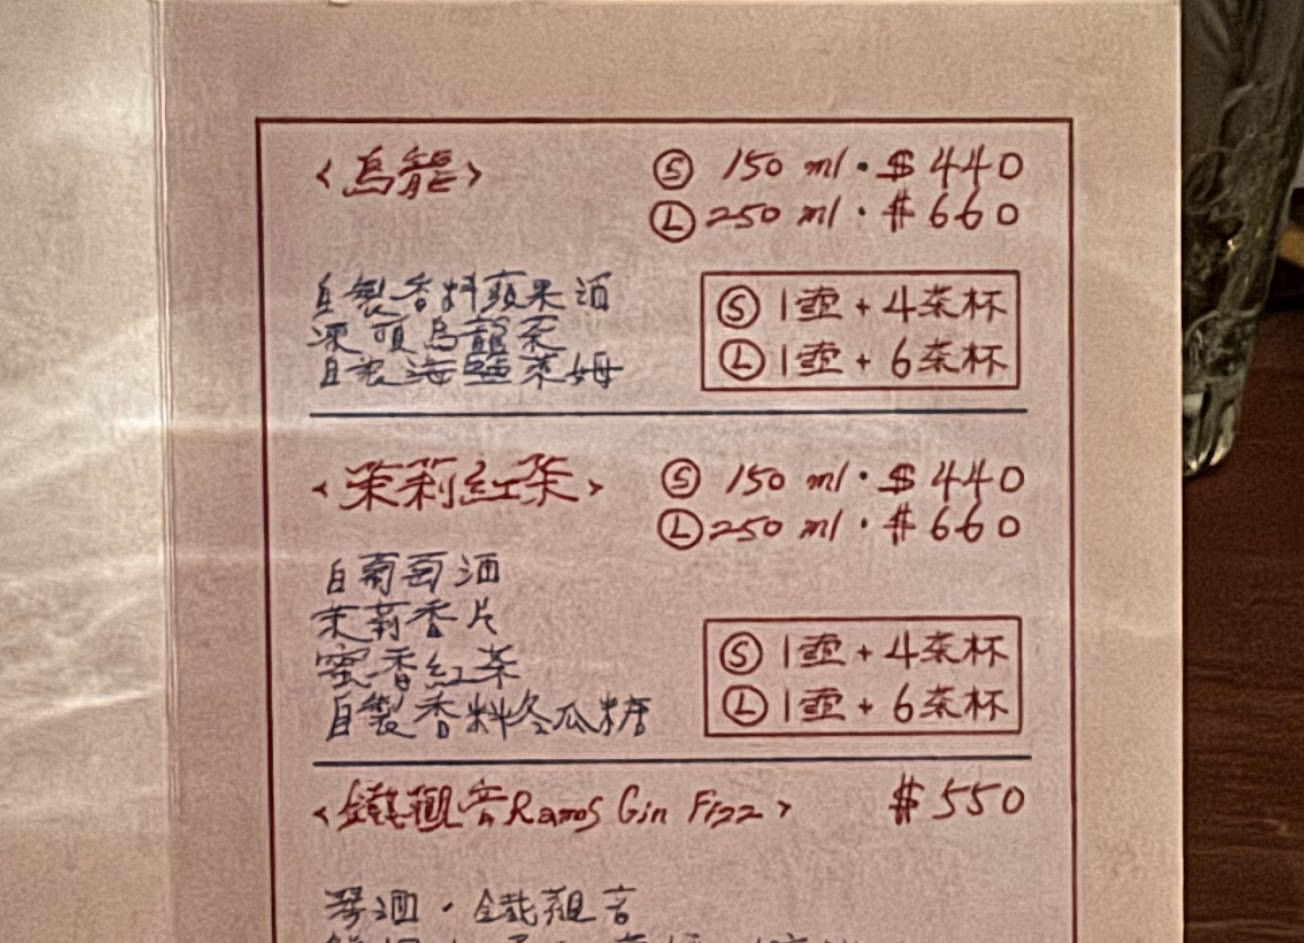 <烏龍>
Ⓢ 150 ml・$440
Ⓛ 250 ml・$660
自製香料蘋果酒
凍頂烏龍茶
自製海鹽萊姆
Ⓢ 1壺+4茶杯
Ⓛ 1壺+6茶杯
<茉莉紅茶>
Ⓢ 150 ml・$440
Ⓛ 250 ml・$660
白葡萄酒
茉莉香片
蜜香紅茶
自製香料冬瓜糖
Ⓢ 1壺+4茶杯
Ⓛ 1壺+6茶杯
<鐵觀音Ramos Gin Fizz> $550
琴酒・鐵觀音